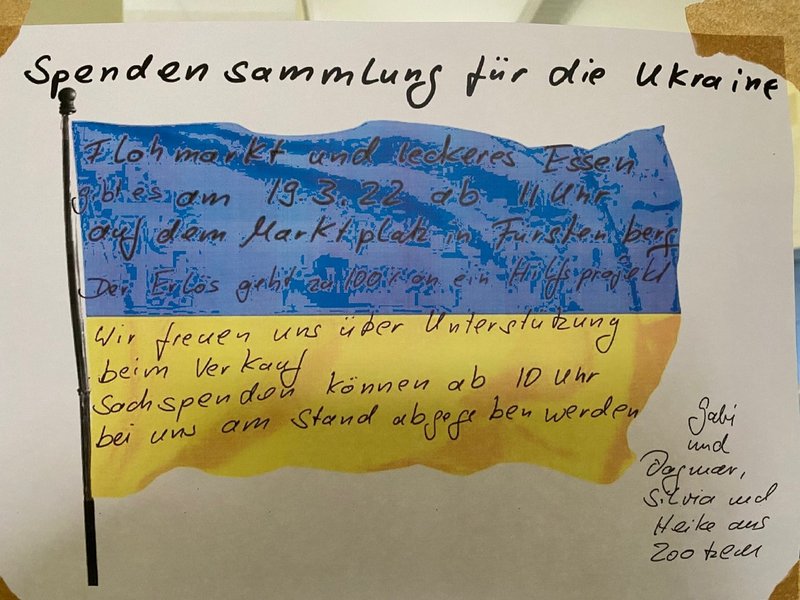 Spendensammlung für die Ukraine
Flohmarkt und leckeres Essen
gibt es am 19.3.22 ab 11 Uhr
auf dem Marktplatz in Fürstenberg
Der Erlös geht zu 100% an ein Hilfsprojekt
Wir freuen uns über Unterstützung
beim Verkauf
Sachspenden können ab 10 Uhr
bei uns am Stand abgegeben werden
Gabi
und
Dagmar,
Silvia und
Heike aus
Zootzen